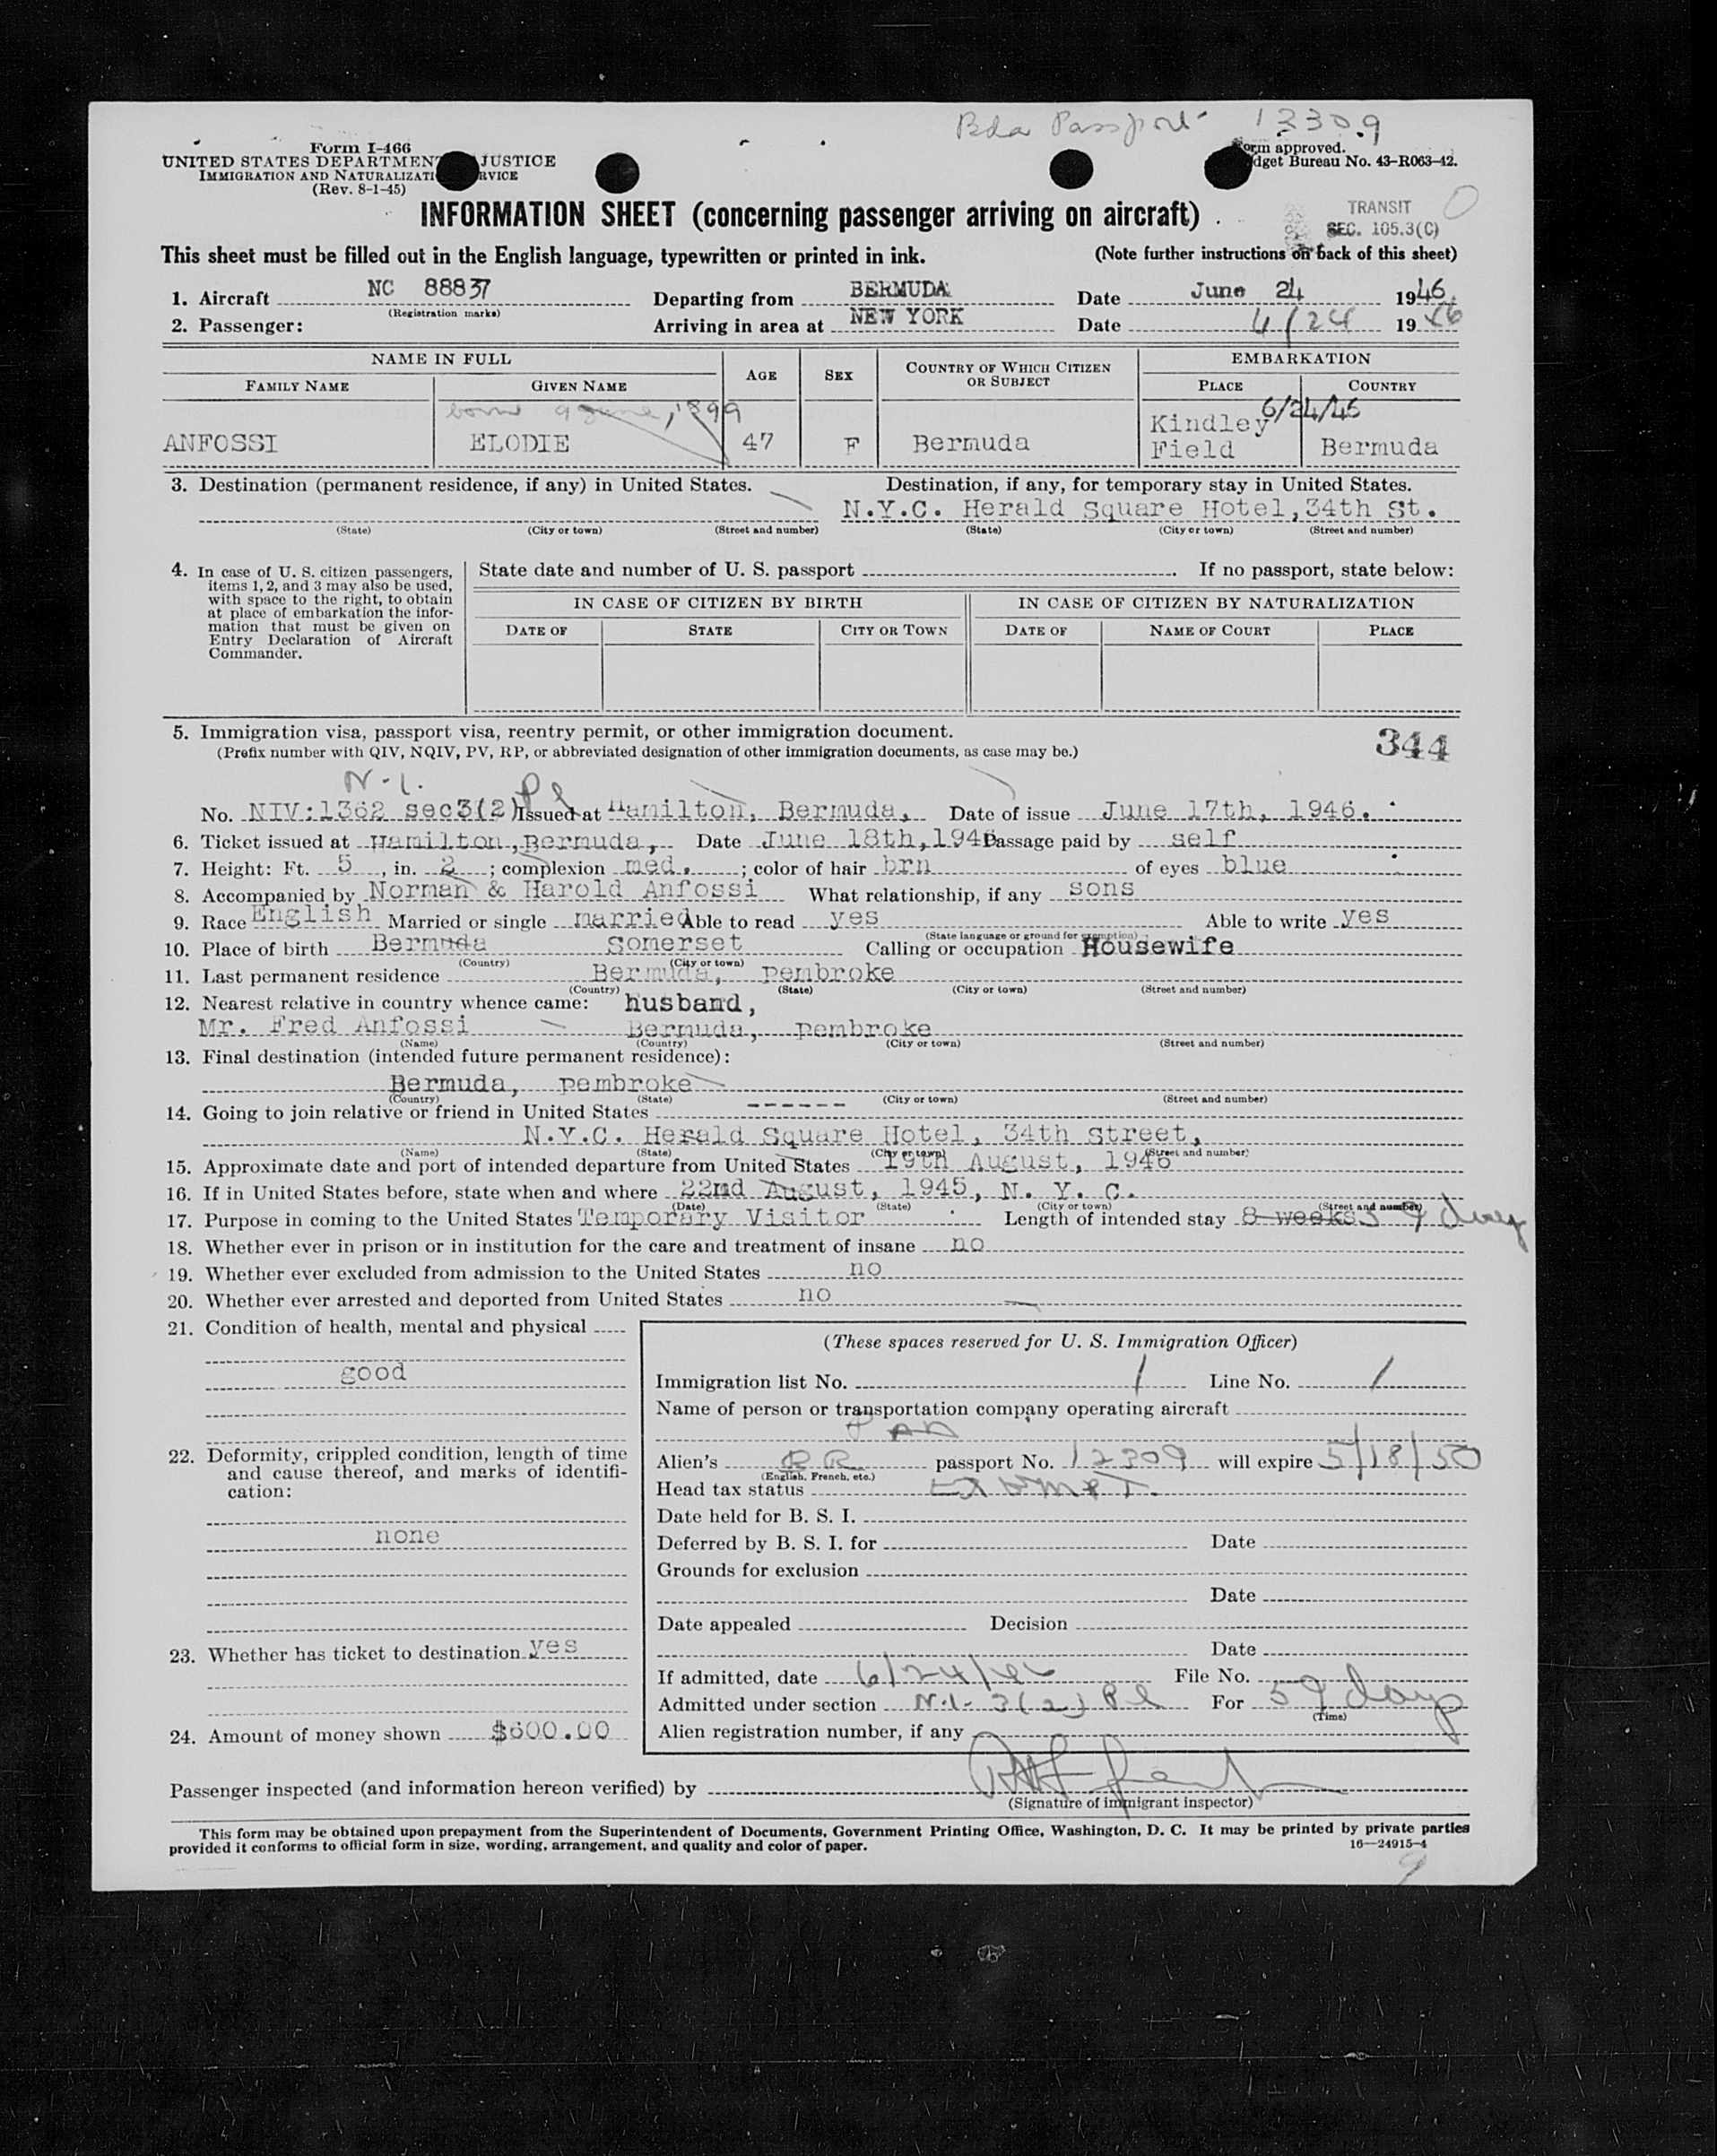 Bda Passport 13309
Form I-466
UNITED STATES DEPARTMENT JUSTICE
IMMIGRATION AND NATURALIZATI RVICE
(Rev. 8-1-45)
orm approved.
dget Bureau No. 43-R063-42.
INFORMATION SHEET (concerning passenger arriving on aircraft)
TRANSIT
SEC. 105.3(C)
This sheet must be filled out in the English language, typewritten or printed in ink. (Note further instructions on back of this sheet)
1. Aircraft NC 88837 Departing from BERMUDA Date June 24 1946.
(Registration marks)
2. Passenger: Arriving in area at NEW YORK Date 4/24 1946
NAME IN FULL AGE SEX COUNTRY OF WHICH CITIZEN OR SUBJECT EMBARKATION
FAMILY NAME GIVEN NAME PLACE COUNTRY
born 9 June, 1899 6/24/46
ANFOSSI ELODIE 47 F Bermuda Kindley Field Bermuda
3. Destination (permanent residence, if any) in United States. Destination, if any, for temporary stay in United States.
N.Y.C. Herald Square Hotel, 34th St.
(State) (City or town) (Street and number) (State) (City or town) (Street and number)
4. In case of U. S. citizen passengers, items 1, 2, and 3 may also be used, with space to the right, to obtain at place of embarkation the information that must be given on Entry Declaration of Aircraft Commander.
State date and number of U. S. passport . If no passport, state below:
IN CASE OF CITIZEN BY BIRTH IN CASE OF CITIZEN BY NATURALIZATION
DATE OF STATE CITY OR TOWN DATE OF NAME OF COURT PLACE
5. Immigration visa, passport visa, reentry permit, or other immigration document.
(Prefix number with QIV, NQIV, PV, RP, or abbreviated designation of other immigration documents, as case may be.)
344
N-1. Pl
No. NIV:1362 sec3(2) Issued at Hamilton, Bermuda, Date of issue June 17th, 1946.
6. Ticket issued at Hamilton, Bermuda, Date June 18th, 1946 Passage paid by self
7. Height: Ft. 5, in. 2; complexion med.; color of hair brn of eyes blue
8. Accompanied by Norman & Harold Anfossi What relationship, if any sons
9. Race English Married or single married Able to read yes Able to write yes
(State language or ground for exemption)
10. Place of birth Bermuda Somerset Calling or occupation Housewife
(Country) (City or town)
11. Last permanent residence Bermuda, pembroke
(Country) (State) (City or town) (Street and number)
12. Nearest relative in country whence came: husband,
Mr. Fred Anfossi Bermuda, pembroke
(Name) (Country) (City or town) (Street and number)
13. Final destination (intended future permanent residence):
Bermuda, pembroke
(Country) (State) (City or town) (Street and number)
14. Going to join relative or friend in United States ------
N.Y.C. Herald Square Hotel, 34th Street,
(Name) (State) (City or town) (Street and number)
15. Approximate date and port of intended departure from United States 19th August, 1946
16. If in United States before, state when and where 22nd August, 1945, N. Y. C.
(Date) (State) (City or town) (Street and number)
17. Purpose in coming to the United States Temporary Visitor Length of intended stay 8 weeks 59 days
18. Whether ever in prison or in institution for the care and treatment of insane no
19. Whether ever excluded from admission to the United States no
20. Whether ever arrested and deported from United States no
21. Condition of health, mental and physical
good
22. Deformity, crippled condition, length of time and cause thereof, and marks of identification:
none
23. Whether has ticket to destination yes
24. Amount of money shown $600.00
(These spaces reserved for U. S. Immigration Officer)
Immigration list No. 1 Line No. 1
Name of person or transportation company operating aircraft
PAA
Alien's BR passport No. 12309 will expire 5/18/50
(English, French, etc.)
Head tax status Exempt.
Date held for B. S. I.
Deferred by B. S. I. for Date
Grounds for exclusion
Date
Date appealed Decision
Date
If admitted, date 6/24/46 File No.
Admitted under section N-1-3(2) Pl For 59 days
(Time)
Alien registration number, if any
Passenger inspected (and information hereon verified) by
(Signature of immigrant inspector)
This form may be obtained upon prepayment from the Superintendent of Documents, Government Printing Office, Washington, D. C. It may be printed by private parties
provided it conforms to official form in size, wording, arrangement, and quality and color of paper. 16—24915-4
9